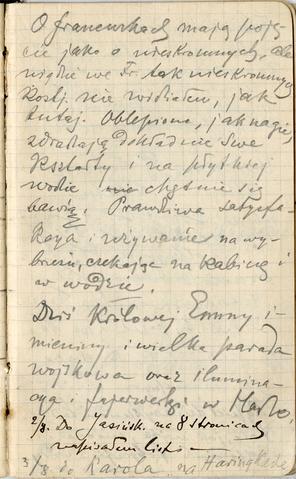 O francuzkach mają poję-
cie jako o nieskromnych, ale
nigdzie we Fr. tak nieskromnych
kostj. nie widziałem, jak
tutaj. Oblepione, jak nagie,
zdradzają dokładnie swe
kształty i na płytkiej
wodzie chętnie się
bawią. Prawdziwa satysfa-
kcya i używanie na wy-
brzeżu, czekając na kabinę i
w wodzie.
Dziś Królowej Emmy i-
mieniny i wielka parada
wojskowa oraz ilumina-
cya i fajerwerki w
2/8. Do Jasińsk. na 8 stronicach
napisałem list
3/8. do Karola na Haringkade